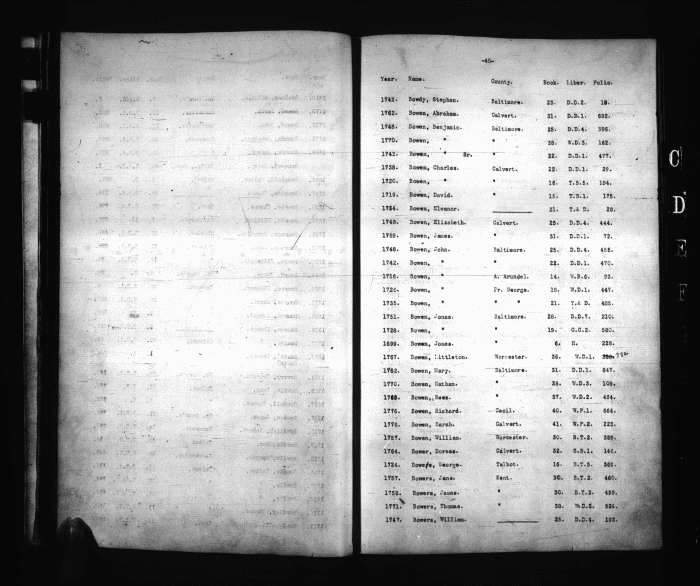 -40-
Year. Name. County. Book. Liber. Folio.
1742. Bowdy, Stephen. Baltimore. 23. D.D.2. 18.
1762. Bowen, Abraham. Calvert. 31. D.D.1. 692.
1748. Bowen, Benjamin. Baltimore. 25. D.D.4. 596.
1770. Bowen, " " 38. W.D.3. 162.
1742. Bowen, " Sr. " 22. D.D.1. 477.
1738. Bowen, Charles. Calvert. 22. D.D.1. 29.
1720. Bowen, " " 16. T.B.5. 194.
Bowen, David. " 15. T.B.1. 175.
1734. Bowen, Eleanor. 21. T.& D. 28.
1748. Bowen, Elizabeth. Calvert. 25. D.D.4. 444.
1759. Bowen, James. " 31. D.D.1. 72.
1748. Bowen, John. Baltimore. 25. D.D.4. 455.
1742. Bowen, " " 22. D.D.1. 470.
1716. Bowen, " A. Arundel. 14. W.B.6. 93.
1726. Bowen, " Pr. George. 19. W.D.1. 447.
1735. Bowen, " " " 21. T.& D. 435.
1751. Bowen, Jonas. Baltimore. 28. D.D.7. 210.
1728. Bowen, " " 19. C.C.2. 580.
1699. Bowen, Joses. " 6. H. 228.
1767. Bowen, Littleton. Worcester. 36. W.D.1.
1762. Bowen, Mary. Baltimore. 31. D.D.1. 847.
1770. Bowen, Nathan. " 38. W.D.3. 108.
1769. Bowen, Rees. " 37. W.D.2. 454.
1776. Bowen, Richard. Cecil. 40. W.F.1. 664.
1776. Bowen, Sarah. Calvert. 41. W.F.2. 225.
1757. Bowen, William. Worcester. 30. B.T.2. 359.
1764. Bower, Dorcas. Calvert. 32. S.B.1. 146.
1724. Bowers, George. Talbot. 16. B.T.5. 365.
1757. Bowers, Jane. Kent. 30. B.T.2. 460.
1758. Bowers, James. " 30. B.T.2. 459.
1771. Bowers, Thomas. " 38. W.D.3. 324.
1747. Bowers, William. 25. D.D.4. 193.
C
D
E
F